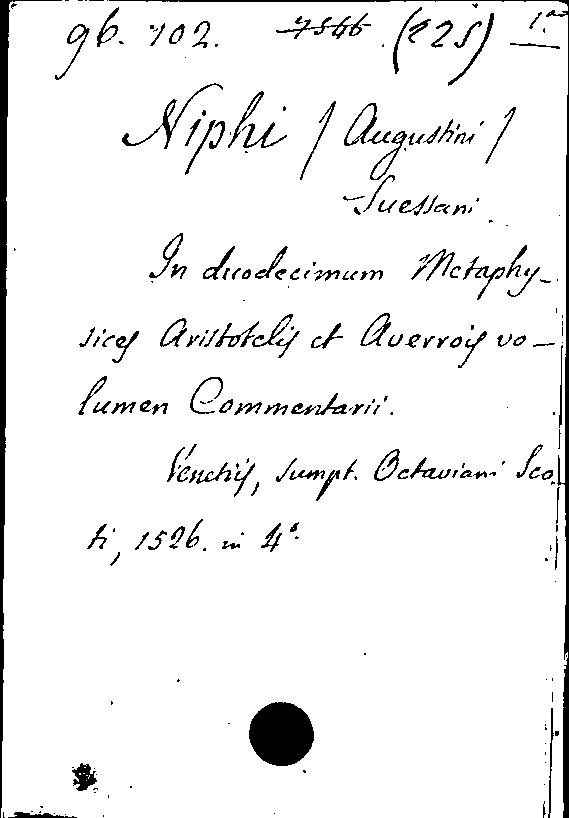 96. 102. 7546 (225) 1.a
Niphi / Augustini /
Suessani
In duodecimum Metaphy-
sices Aristotelis et Averrois vo-
lumen Commentarii.
Venetiis, sumpt. Octaviani Sco
ti, 1526. in 4°.